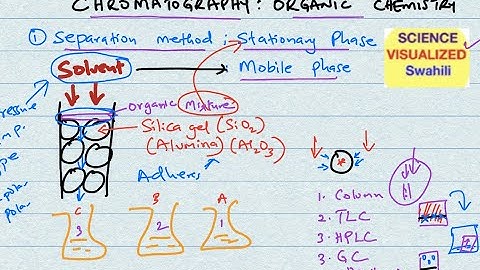 CHROMATOGRAPHY: ORGANIC CHEMISTRY
① Separation method : Stationary Phase
SCIENCE
VISUALIZED
Swahili
Solvent
Mobile phase
organic Mixture
Silica gel (SiO2)
(Alumina) (Al2O3)
Adheres
C
B
A
3
2
1
1. Column
2. TLC
3. HPLC
4. GC